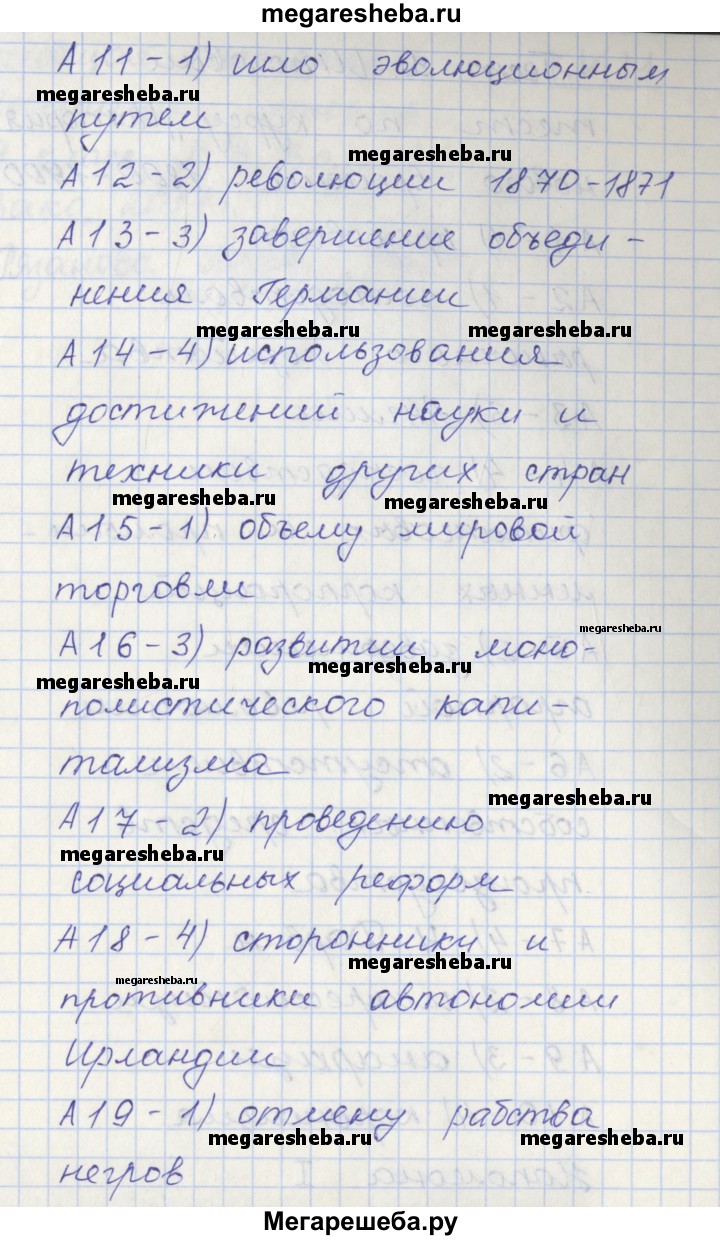 megaresheba.ru
А11 - 1) шло эволюционным
megaresheba.ru
путем
megaresheba.ru
А12 - 2) революции 1870-1871
А13 - 3) завершение объеди -
нения Германии
megaresheba.ru megaresheba.ru
А14 - 4) использования
достижений науки и
техники других стран
megaresheba.ru megaresheba.ru
А15 - 1) объему мировой
торговли
megaresheba.ru
А16 - 3) развитии моно-
megaresheba.ru
megaresheba.ru
полистического капи -
тализма
megaresheba.ru
А17 - 2) проведению
megaresheba.ru
социальных реформ
А18 - 4) сторонники и
megaresheba.ru
противники автономии
Ирландии
А19 - 1) отмену рабства
megaresheba.ru megaresheba.ru
негров
Мегарешеба.ру